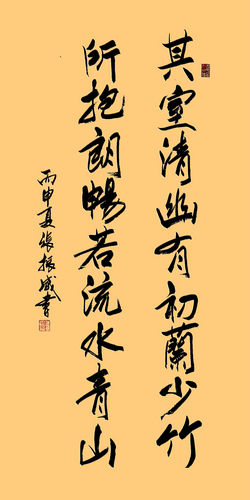 其室清幽有初蘭少竹
所抱朗暢若流水青山
丙申夏張振威書